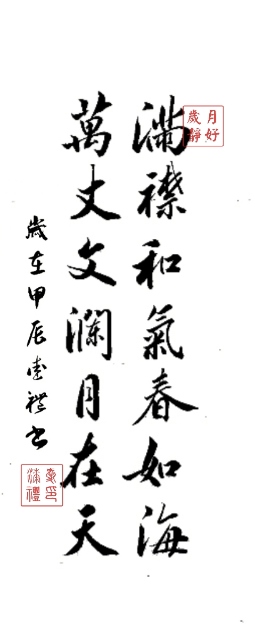 滿襟和氣春如海
萬丈文瀾月在天
歲在甲辰
書
月好
歲靜